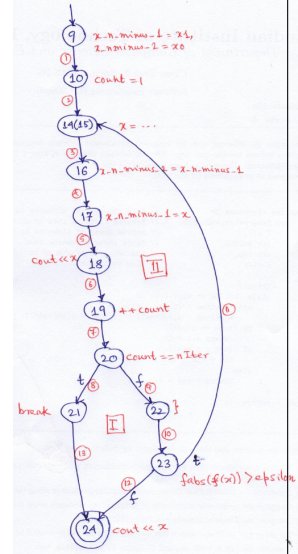 9 x_n_minus_1 = x1,
x_n_minus_2 = x0
1
10 count = 1
2
14(15) x = ...
3
16 x_n_minus_2 = x_n_minus_1
4
17 x_n_minus_1 = x
5
cout << x 18
6
II
19 ++count
8
7
20 count == nIter
t 8 f 9
break 21 I 22 }
10
13 23 t
12 f fabs(f(x)) > epsilon
24 cout << x